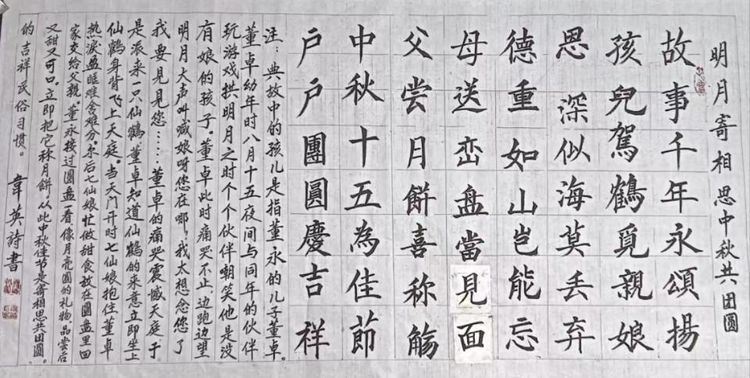 明月寄相思中秋共团圆
故事千年永頌揚
孩兒駕鶴覓親娘
恩深似海莫丢弃
德重如山岂能忘
母送峦盘當見面
父尝月餅喜称觞
中秋十五為佳節
户户團圓慶吉祥
注：典故中的孩儿是指董永的儿子董卓。
董卓幼年时八月十五夜间与同年的伙伴
玩游戏拱明月之时个个伙伴嘲笑他是没
有娘的孩子。董卓此时痛哭不止，边跑边望
明月大声叫喊娘呀您在哪，我太想念您了
我要見見您……董卓的痛哭震撼天庭于
是派来一只仙鹤，董卓知道仙鹤的来意立即坐上
仙鹤身背飞上天庭。当天门开时七仙娘抱住董卓
热淚盈眶难舍难分。尔后七仙娘忙做甜食放在圆盘里回
家交给父親，董永接过圆盘一看像月亮圆的礼物品尝后
又甜又可口，立即把它称月餅，从此中秋佳节是寄相思共团圆。
的吉祥民俗习惯。 韋英詩書